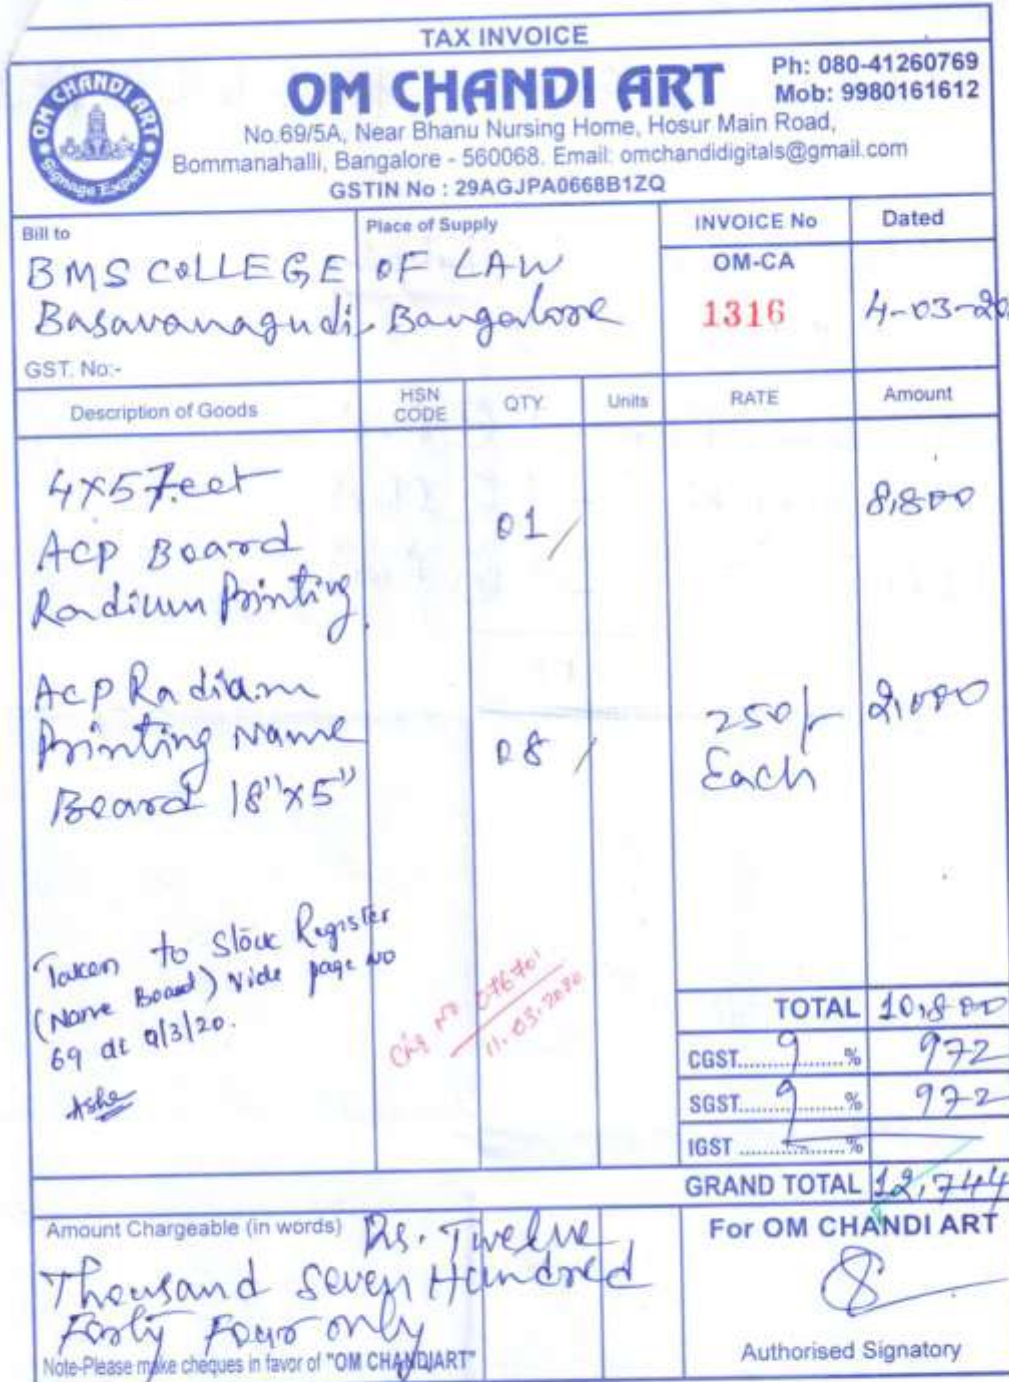 TAX INVOICE
OM CHANDI ART
Signage Experts
OM CHANDI ART
Ph: 080-41260769
Mob: 9980161612
No.69/5A, Near Bhanu Nursing Home, Hosur Main Road,
Bommanahalli, Bangalore - 560068. Email: omchandidigitals@gmail.com
GSTIN No : 29AGJPA0668B1ZQ
Bill to
Place of Supply
INVOICE No
Dated
BMS COLLEGE OF LAW
Basavanagudi, Bangalore
OM-CA
1316
4-03-20
GST. No:-
Description of Goods
HSN CODE
QTY.
Units
RATE
Amount
4x5 Feet
ACP Board
Radium Printing
01/
8,800
ACP Radiam
Printing Name
Board 18"x5"
08/
250/-
Each
2,000
Taken to Stock Register
(Name Board) Vide page no
69 dt 9/3/20.
Chq No
11.03.2020
TOTAL 10,800
CGST 9 % 972
SGST 9 % 972
IGST %
GRAND TOTAL 12,744
Amount Chargeable (in words) Rs. Twelve
Thousand Seven Hundred
Forty Four only
For OM CHANDI ART
Note-Please make cheques in favor of "OM CHANDIART"
Authorised Signatory